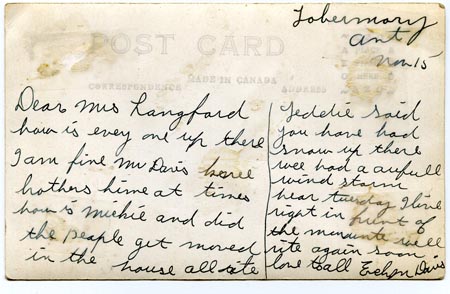 Tobermory
Ont
Nov 15
POST CARD
MADE IN CANADA
CORRESPONDENCE
ADDRESS
Dear Mrs Langford
how is evey one up there
I am fine Mr Davis
bothers hime at times
how is Mickie and did
the people get moved
in the house all rite
Teddie said
you have had
snow up there
wee had a aufull
wind storm
hear tuesday I live
right in frunt of
the well
rite again soon
love to all Evelyn Davis